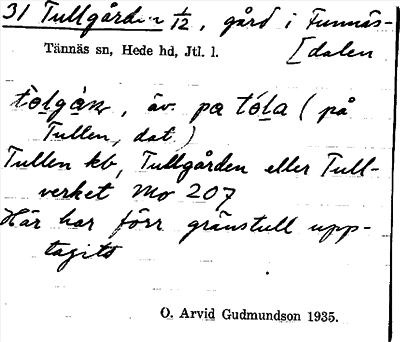 31 Tullgården 1/12, gård i Funnäs-
[dalen
Tännäs sn, Hede hd, Jtl. l.
även pa tóla (på
Tullen, dat.)
Tullen kb, Tullgården eller Tull-
verket Mo 207
Här har förr gränstull upp-
tagits
O. Arvid Gudmundson 1935.